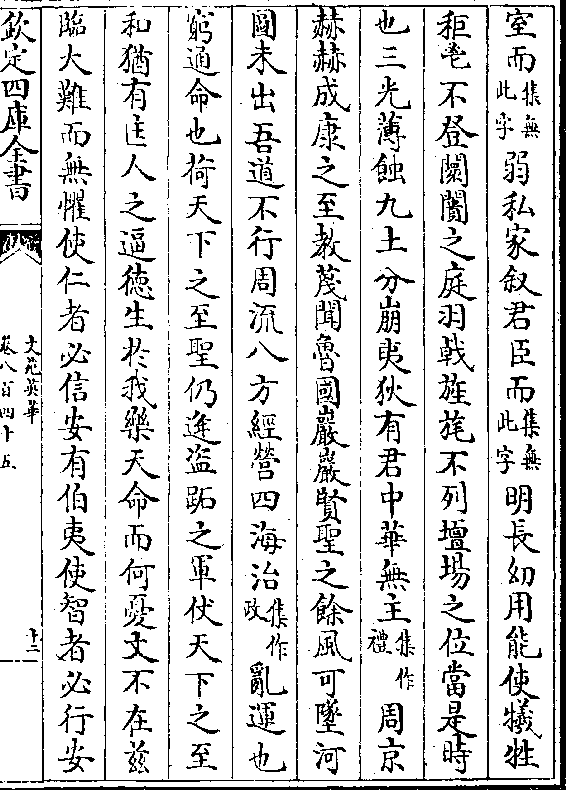 室而集無此字弱私家叙君臣而集無此字明長㓜用能使犧牲
秬鬯不登闕闇之庭羽㦸旌旄不列壇場之位當是時
也三光薄蝕九土分崩夷狄有君中華無主集作禮周京
赫赫成康之至教蔑聞魯國巖巖賢聖之餘風可墜河
圖未出吾道不行周流八方經營四海治集作政亂運也
窮通命也荷天下之至聖仍逢盗跖之軍伏天下之至
和猶有匡人之逼德生扵我樂天命而何憂文不在兹
臨大難而無懼使仁者必信安有伯夷使智者必行安
欽定四庫全書
文苑英華
卷八百四十五
十二